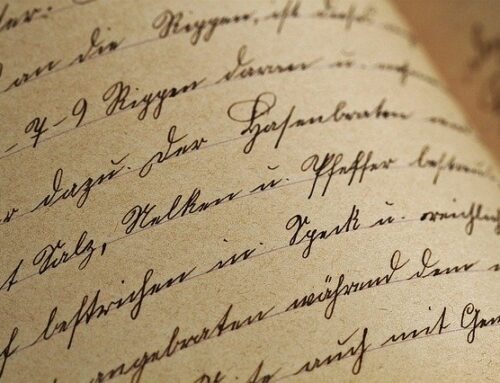 an die Rippen, ist dieses
- 7-9 Rippen daran u.
dazu. Der Hasenbraten
Salz, Nelken u. Pfeffer bestreut
bestrichen in Speck u. reichlich
angebraten während dem
auch mit